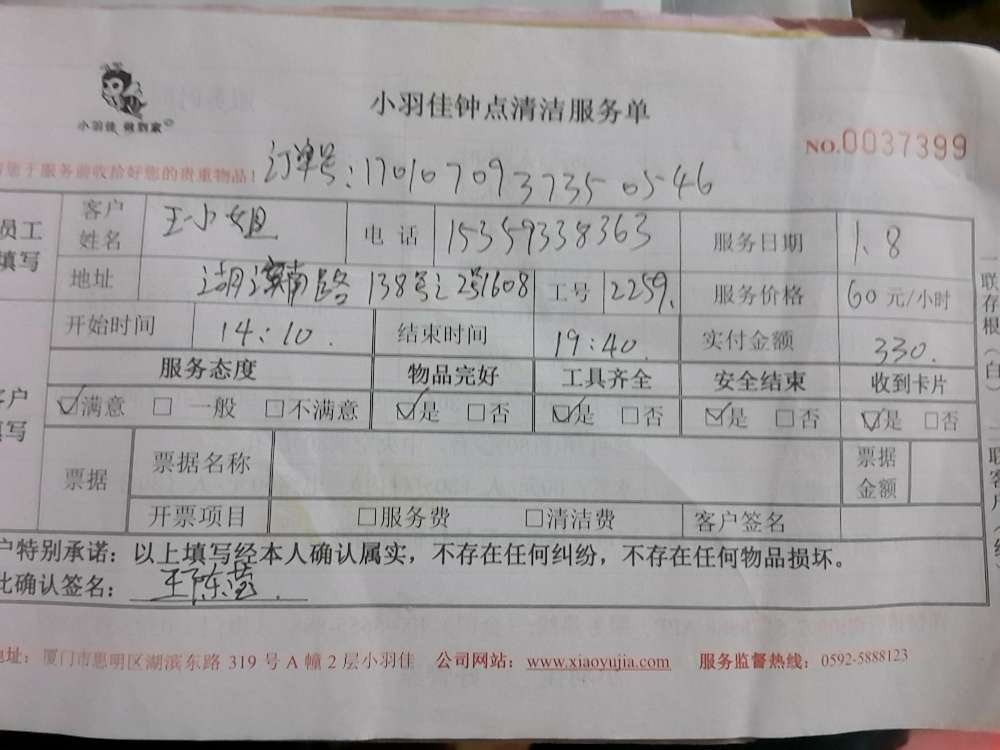 小羽佳钟点清洁服务单
小羽佳 做到家
NO.0037399
您于服务前收拾好您的贵重物品！ 订单号：17010709373505 46
员工填写 客户姓名 王小姐 电 话 15359338363 服务日期 1.8
地址 湖滨南路138号之2号1608 工号 2259. 服务价格 60元/小时
开始时间 14:10. 结束时间 19:40. 实付金额 330.
服务态度 物品完好 工具齐全 安全结束 收到卡片
☑满意 □ 一般 □不满意 ☑是 □否 ☑是 □否 ☑是 □否 ☑是 □否
票据 票据名称 票据金额
开票项目 □服务费 □清洁费 客户签名
户特别承诺：以上填写经本人确认属实，不存在任何纠纷，不存在任何物品损坏。
此确认签名：王陈莹.
地址：厦门市思明区湖滨东路 319 号 A 幢 2 层小羽佳 公司网站：www.xiaoyujia.com 服务监督热线：0592-5888123
一联存根（白）